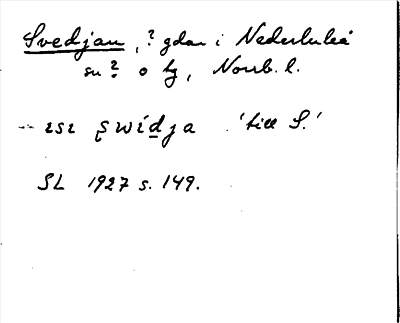 Svedjan, ? gdar i Nederluleå
sn ? o tg, Norrb. l.
ısı swidja 'till S.'
SL 1927 s. 149.